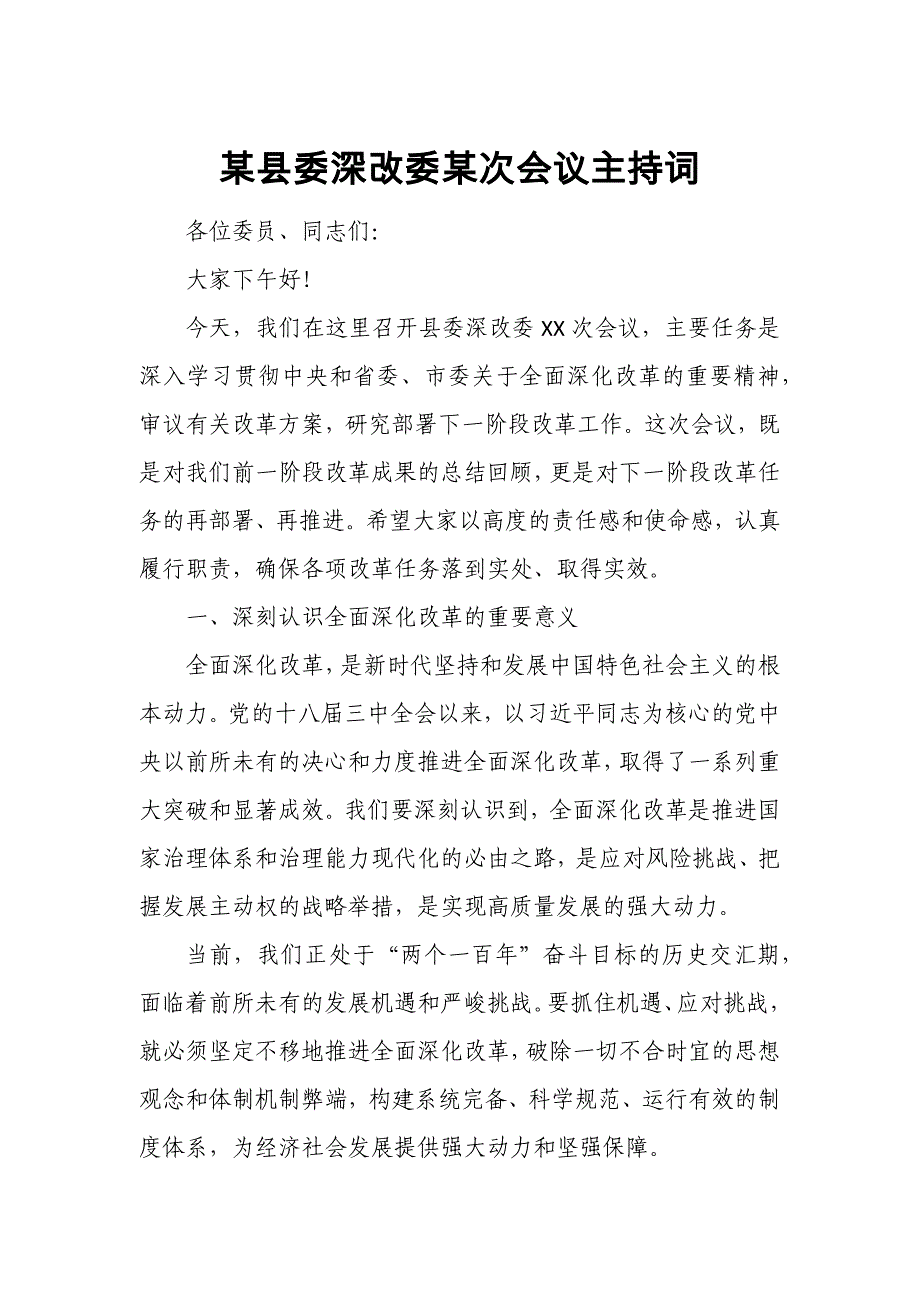 某县委深改委某次会议主持词
各位委员、同志们：
大家下午好！
今天，我们在这里召开县委深改委 XX 次会议，主要任务是
深入学习贯彻中央和省委、市委关于全面深化改革的重要精神，
审议有关改革方案，研究部署下一阶段改革工作。这次会议，既
是对我们前一阶段改革成果的总结回顾，更是对下一阶段改革任
务的再部署、再推进。希望大家以高度的责任感和使命感，认真
履行职责，确保各项改革任务落到实处、取得实效。
一、深刻认识全面深化改革的重要意义
全面深化改革，是新时代坚持和发展中国特色社会主义的根
本动力。党的十八届三中全会以来，以习近平同志为核心的党中
央以前所未有的决心和力度推进全面深化改革，取得了一系列重
大突破和显著成效。我们要深刻认识到，全面深化改革是推进国
家治理体系和治理能力现代化的必由之路，是应对风险挑战、把
握发展主动权的战略举措，是实现高质量发展的强大动力。
当前，我们正处于“两个一百年”奋斗目标的历史交汇期，
面临着前所未有的发展机遇和严峻挑战。要抓住机遇、应对挑战，
就必须坚定不移地推进全面深化改革，破除一切不合时宜的思想
观念和体制机制弊端，构建系统完备、科学规范、运行有效的制
度体系，为经济社会发展提供强大动力和坚强保障。